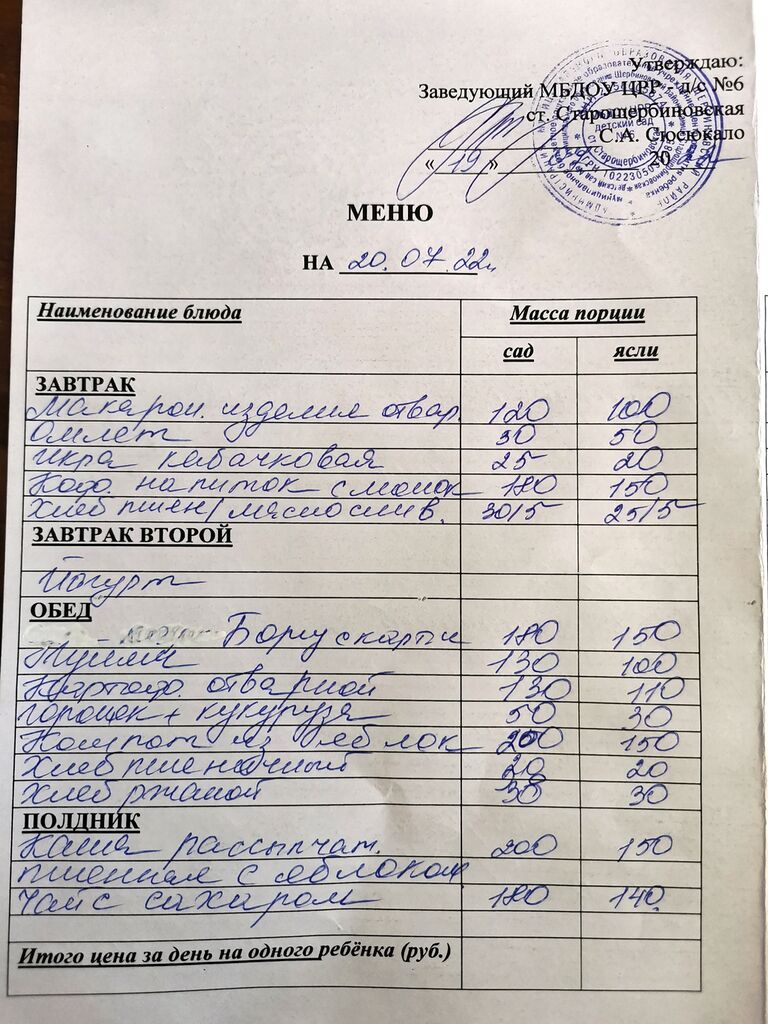 Утверждаю:
Заведующий МБДОУ ЦРР - д/с №6
ст. Старощербиновская
С.А. Сюсюкало
« 19 » 20
МЕНЮ
НА 20.07.22г
Наименование блюда Масса порции
сад ясли
ЗАВТРАК
Макарон. изделия отвар. 120 100
Омлет 30 50
Икра кабачковая 25 20
Кофе. напиток с молок 180 150
Хлеб пшен/масло слив. 30/5 25/5
ЗАВТРАК ВТОРОЙ
Йогурт
ОБЕД
Борщ с карт 180 150
130 100
Картоф. отварной 130 110
горошек + кукуруза 50 30
Компот из яблок 200 150
Хлеб пшеничный 20 20
Хлеб ржаной 30 30
ПОЛДНИК
Каша рассыпчат. 200 150
пшенная с яблоком
Чай с сахаром 180 140
Итого цена за день на одного ребёнка (руб.)